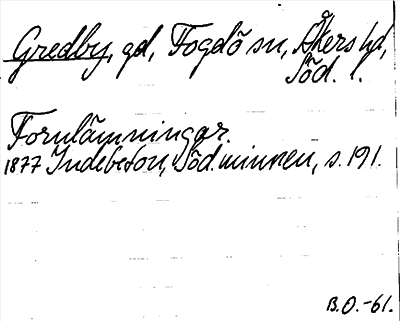 Gredby, gd, Fogdö sn, Åkers hd,
Söd. l.
Fornlämningar.
1877 Indebetou, Söd. minnen, s. 191.
B.O.-61.